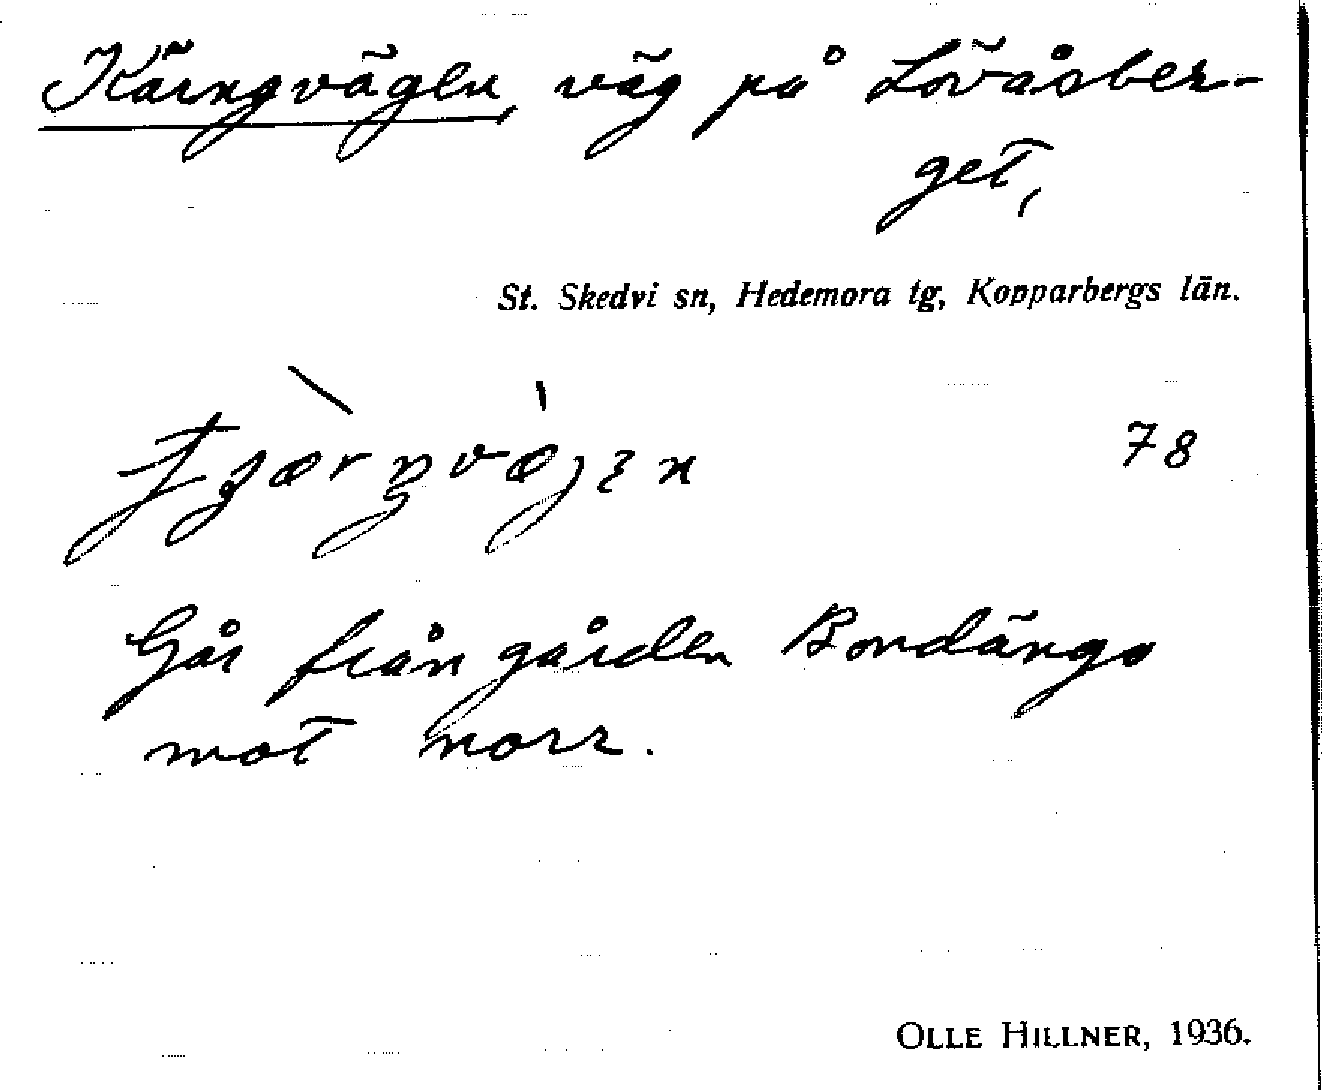 Kärngvägen, väg på Lövåsber-
get,
St. Skedvi sn, Hedemora tg, Kopparbergs län.
78
Går från gården Bondängs
mot norr.
OLLE HILLNER, 1936.